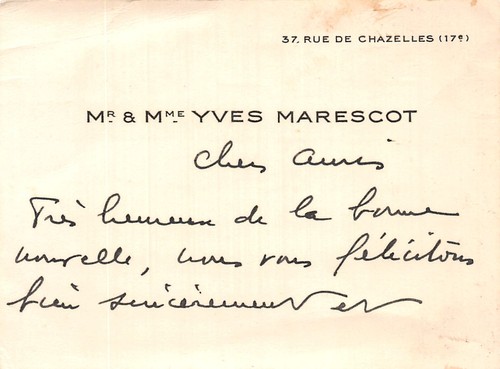 37, RUE DE CHAZELLES (17e)
MR & MME YVES MARESCOT
Chers amis
Très heureux de la bonne
nouvelle, nous vous félicitons
bien sincèrement et